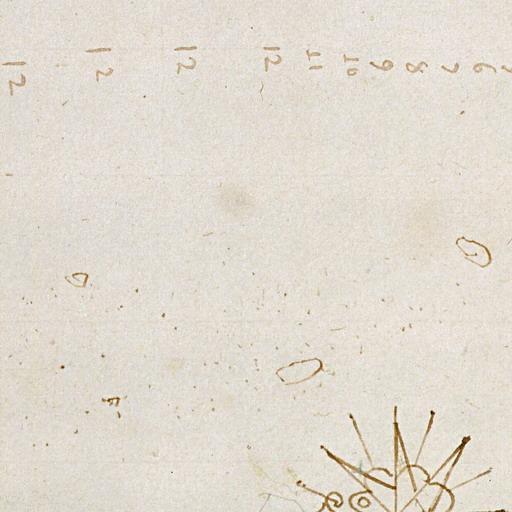 12 12 12 12 11 10 9 8 7 6